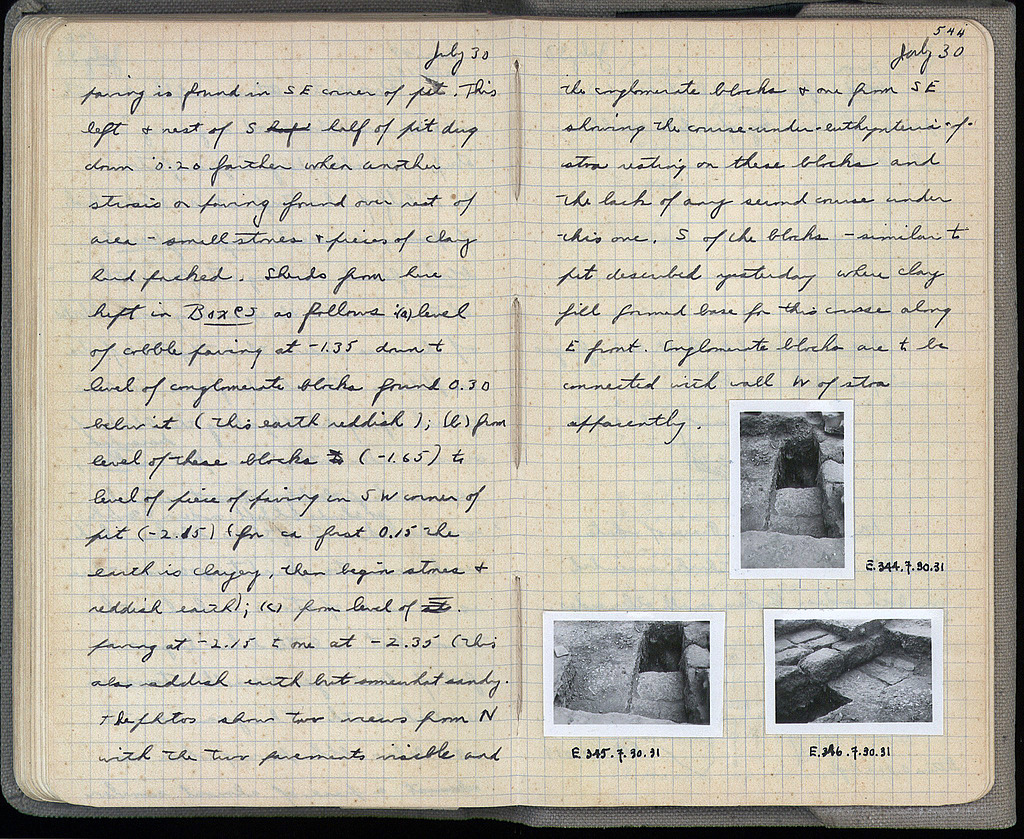 July 30
paving is found in SE corner of pit. This
left & rest of S half of pit dug
down 0.20 farther when another
strosis or paving found over rest of
area - small stones & pieces of clay
hard packed. Sherds from here
kept in Boxes as follows: (a) level
of cobble paving at -1.35 down to
level of conglomerate blocks found 0.30
below it (this earth reddish); (b) from
level of these blocks (-1.65) to
level of piece of paving in SW corner of
pit (-2.15) (for ca first 0.15 the
earth is clayey, then begin stones &
reddish earth); (c) from level of
paving at -2.15 to one at -2.35 (this
also reddish earth but somewhat sandy.
show two views from N
with the two pavements visible and
544
July 30
the conglomerate blocks & one from SE
showing the course-under-euthynteria-of-
stoa resting on these blocks and
the lack of any second course under
this one. S of the blocks - similar to
pit described yesterday where clay
fill formed base for this course along
E front. Conglomerate blocks are to be
connected with wall W of stoa
apparently.
E.344.7.30.31
E.345.7.30.31
E.346.7.30.31